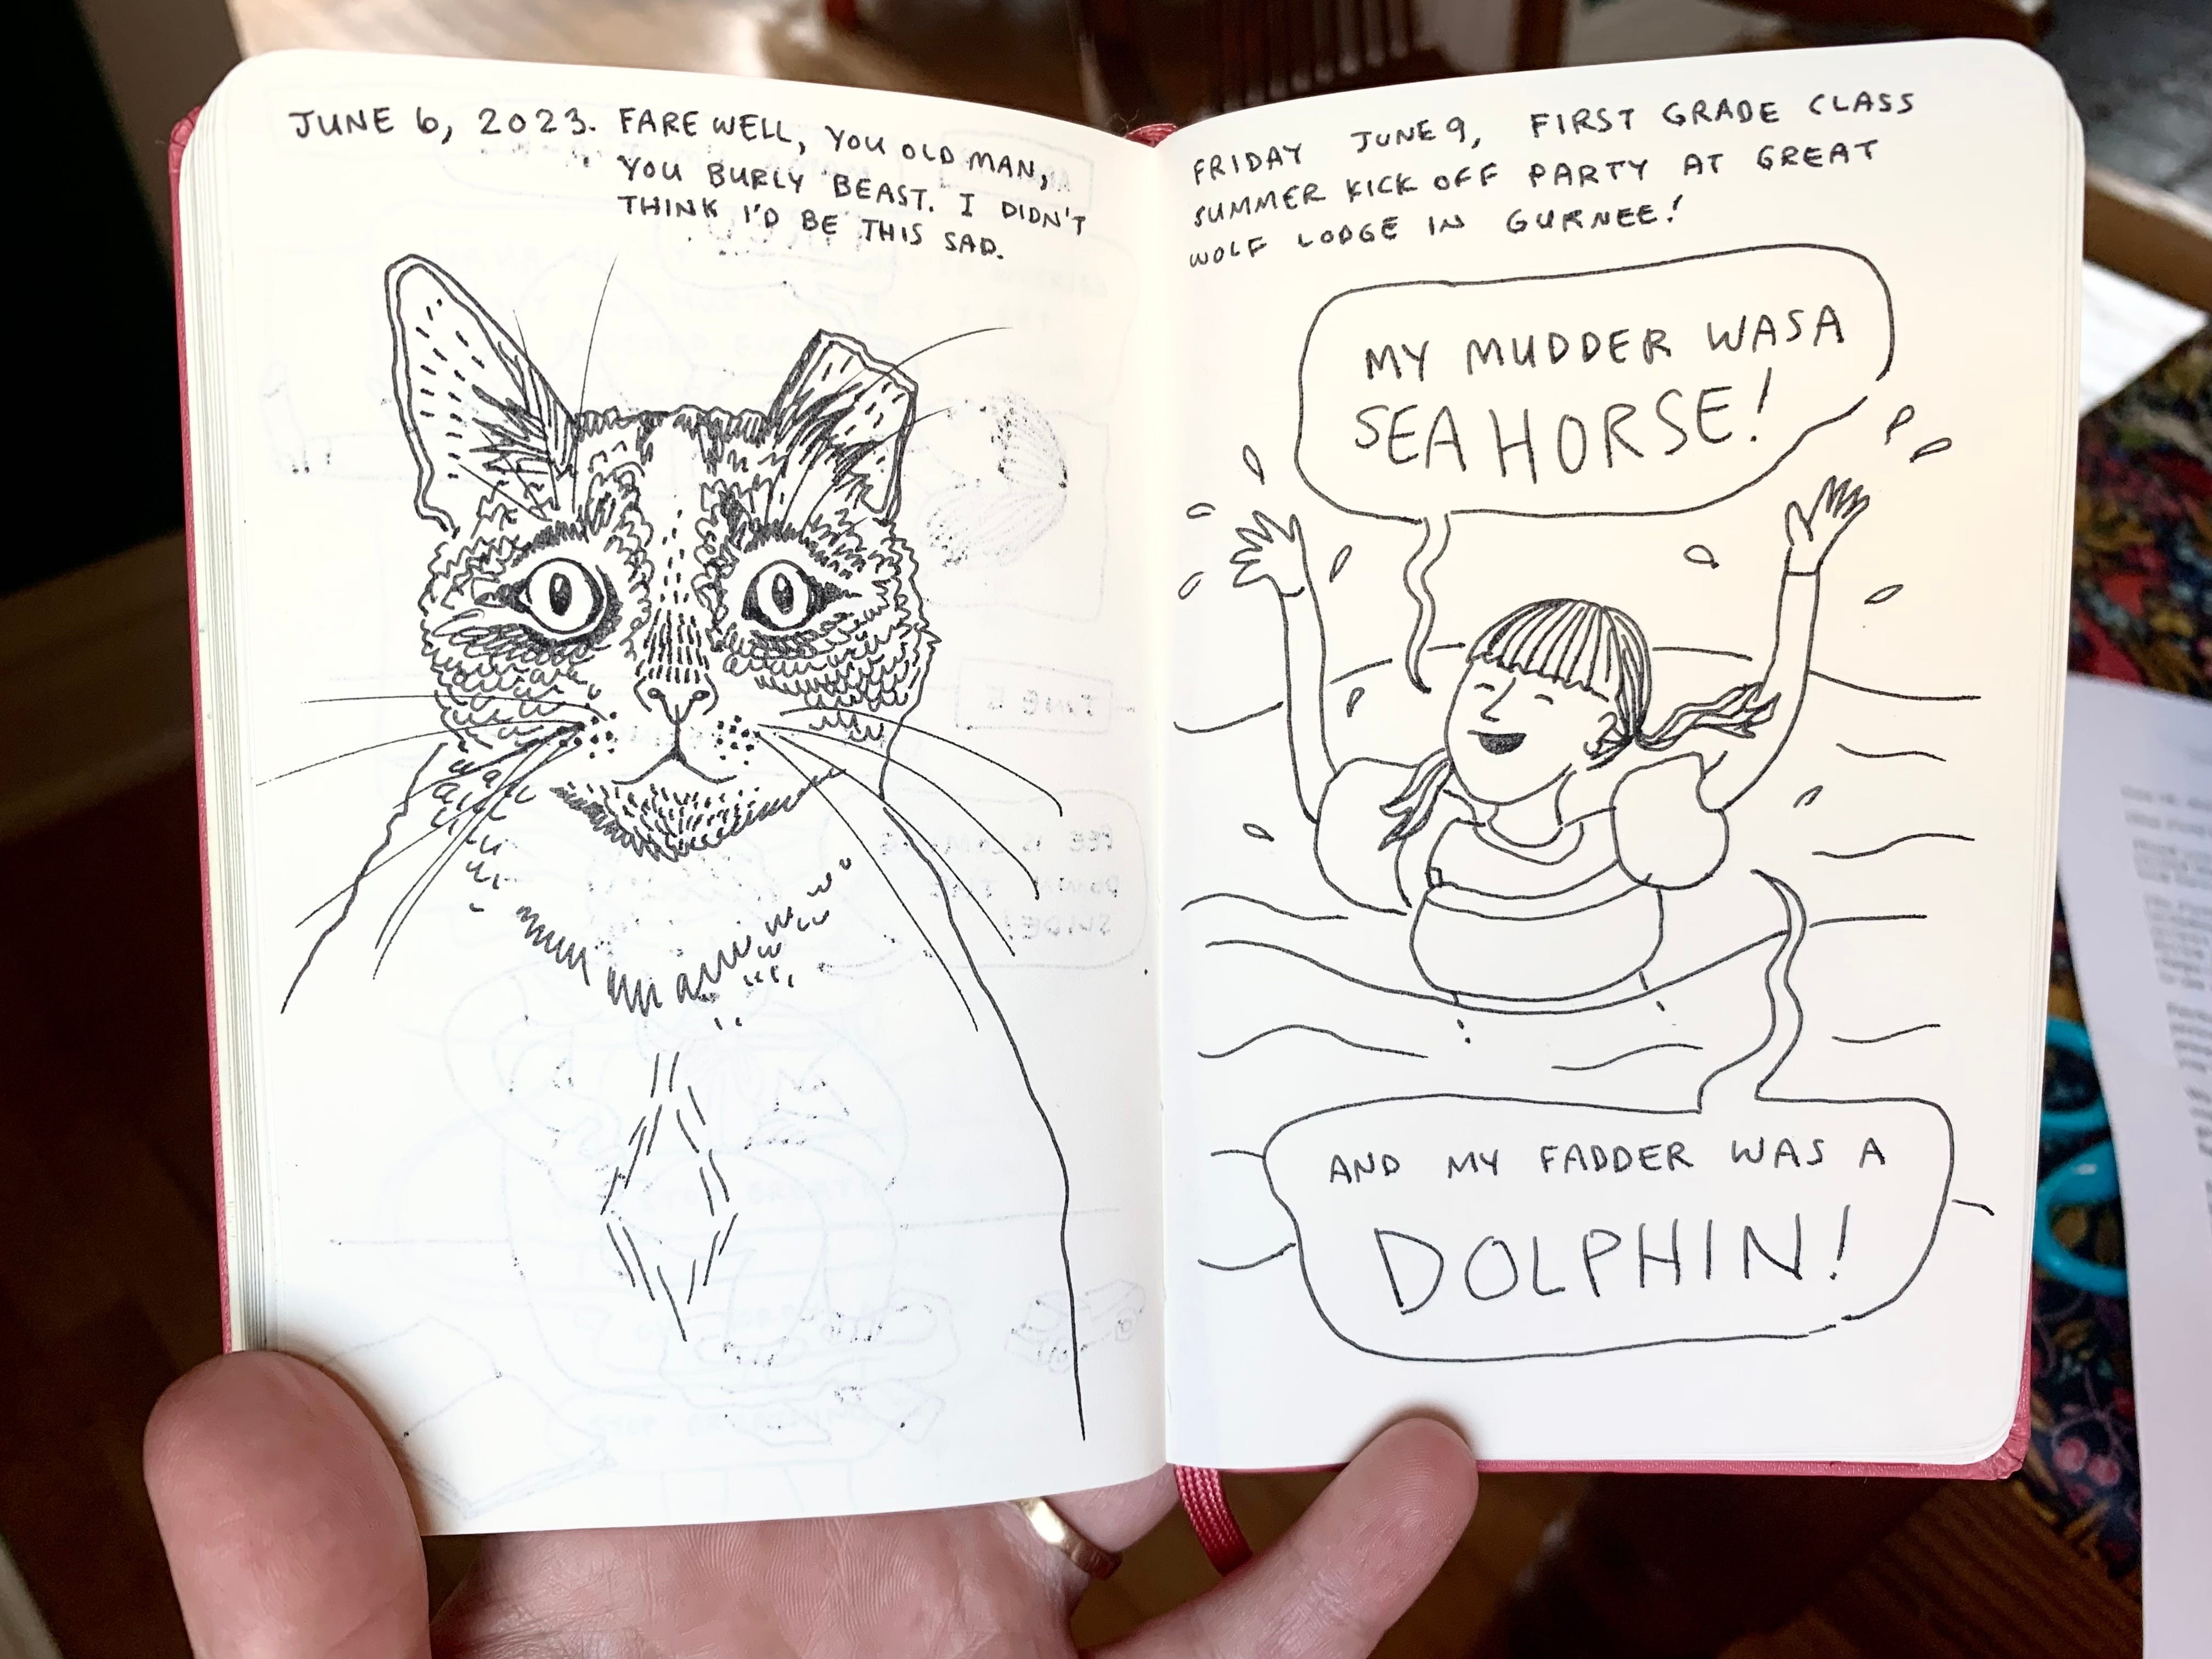 JUNE 6, 2023. FAREWELL, YOU OLD MAN,
YOU BURLY BEAST. I DIDN'T
THINK I'D BE THIS SAD.
FRIDAY JUNE 9, FIRST GRADE CLASS
SUMMER KICK OFF PARTY AT GREAT
WOLF LODGE IN GURNEE!
MY MUDDER WAS A
SEA HORSE!
AND MY FADDER WAS A
DOLPHIN!